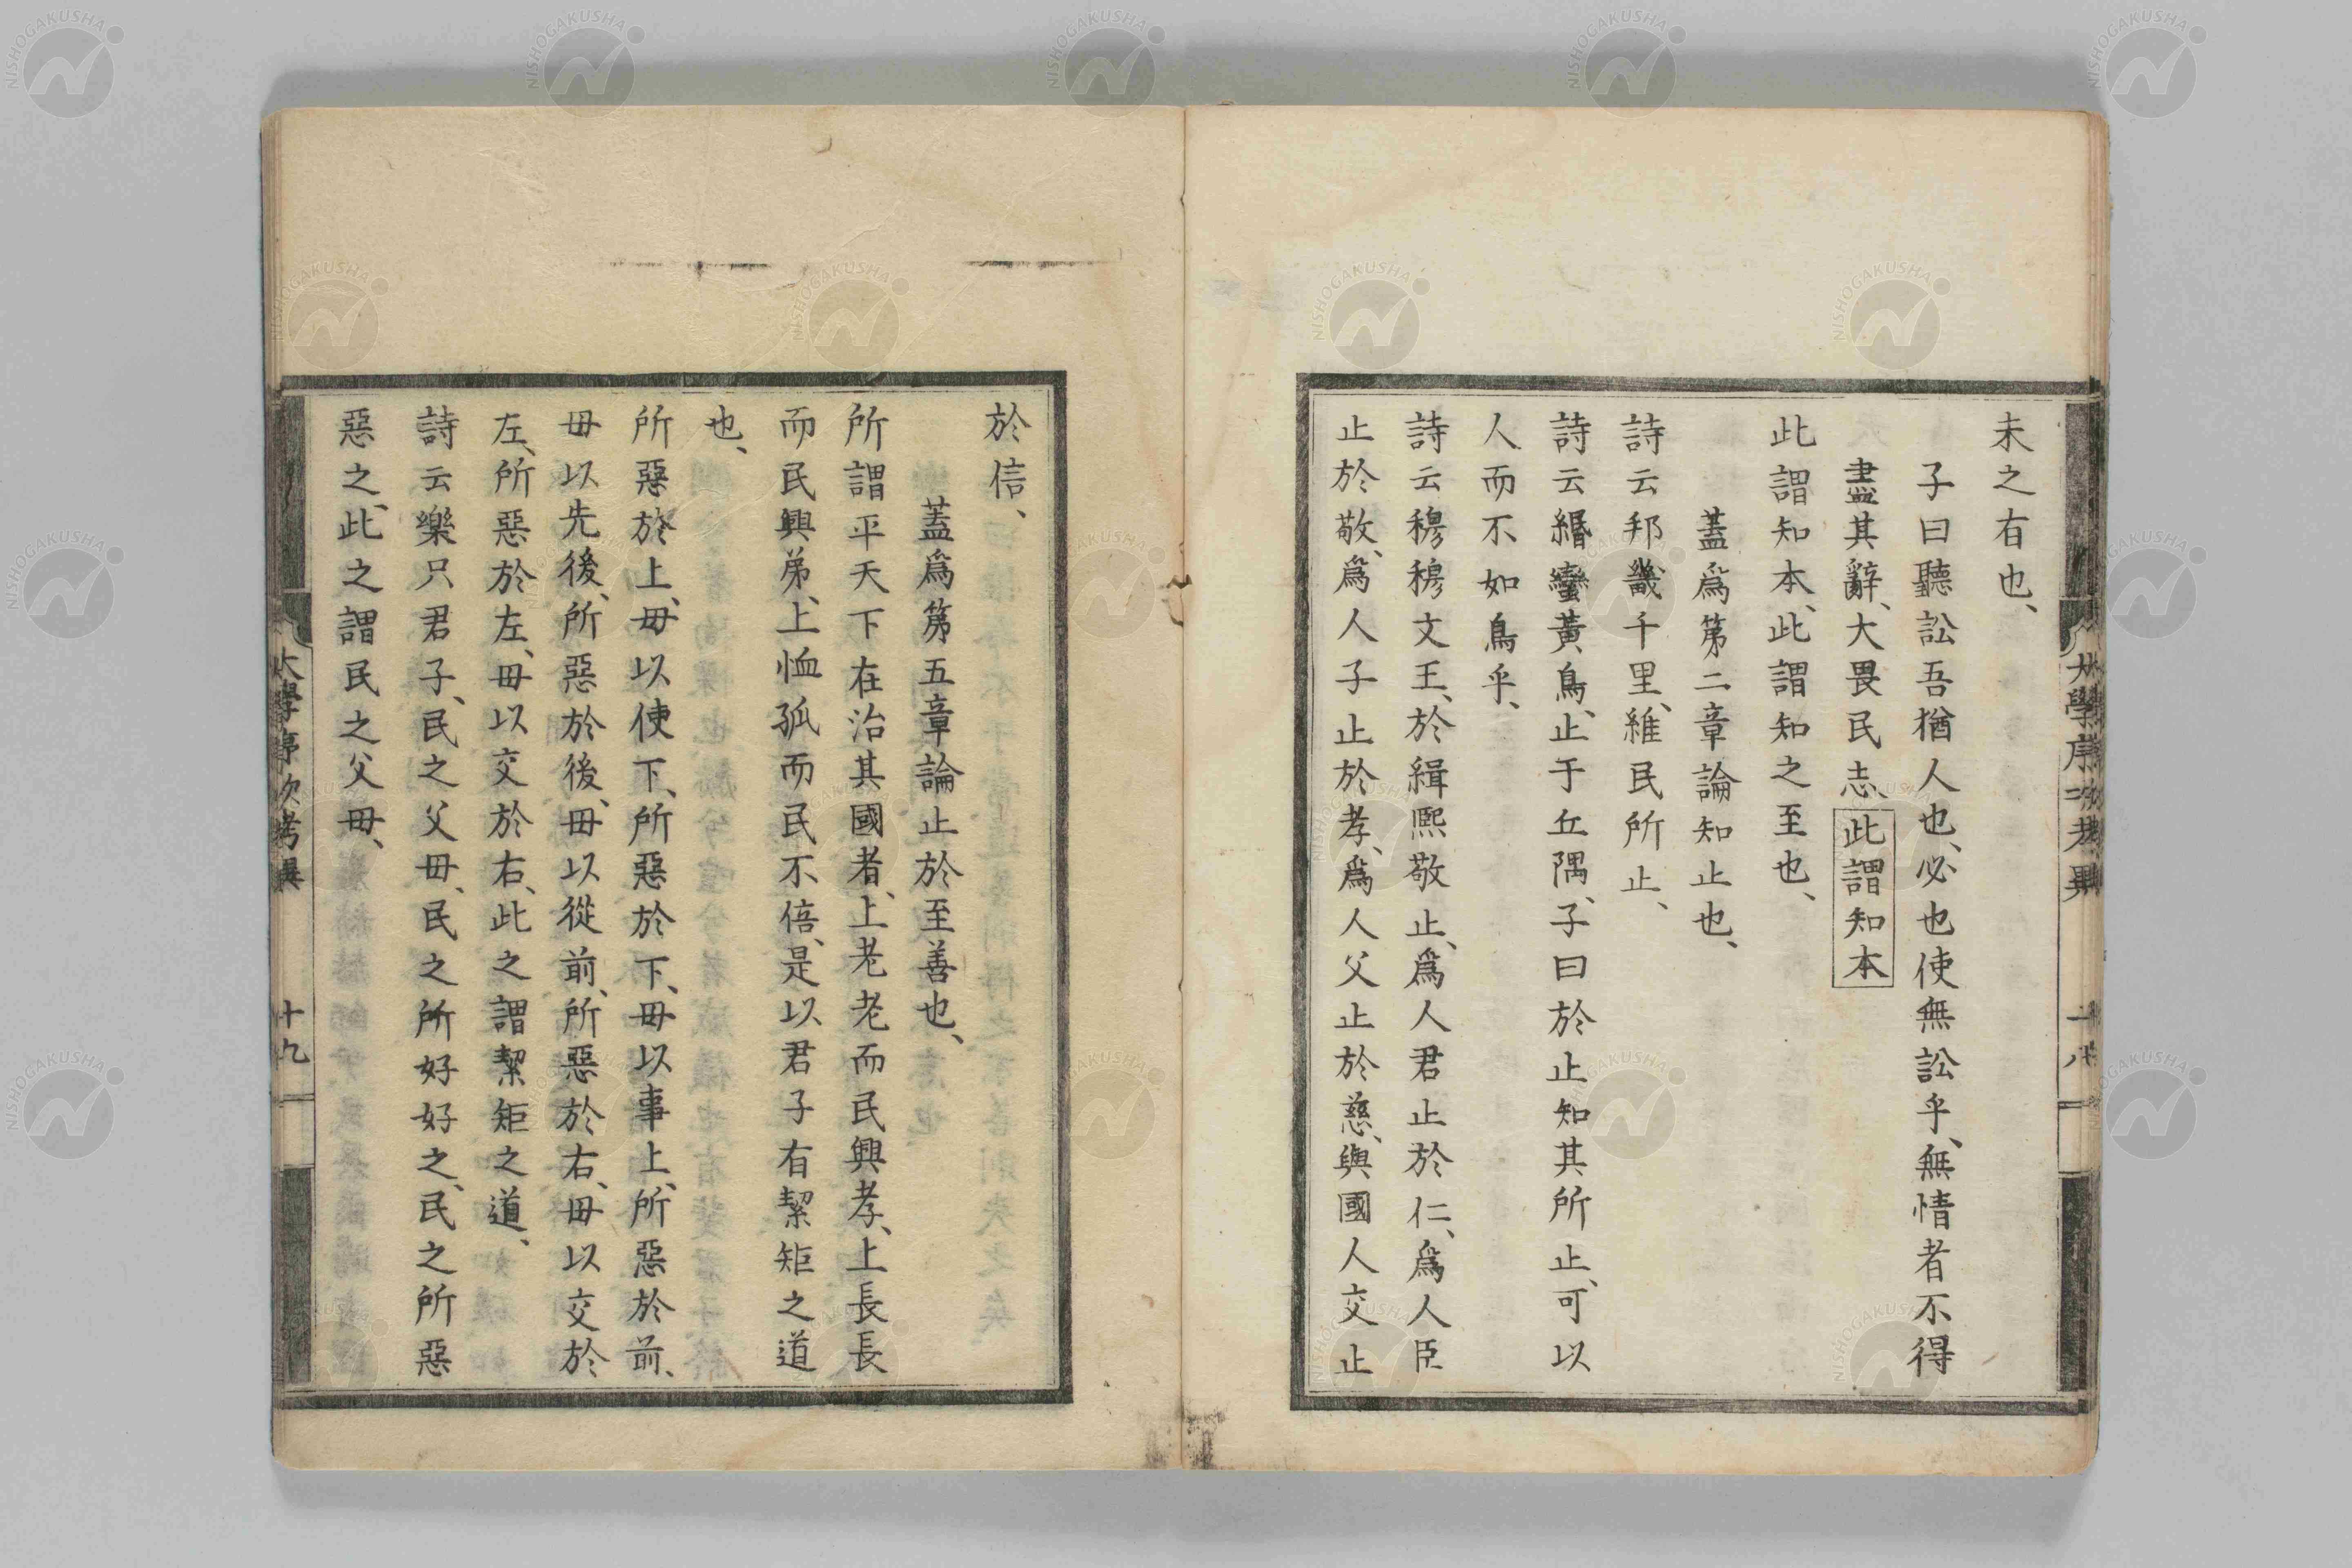 未之有也、
子曰聽訟吾猶人也、必也使無訟乎、無情者不得
盡其辭、大畏民志、此謂知本
此謂知本、此謂知之至也、
蓋爲第二章論知止也、
詩云邦畿千里、維民所止、
詩云緡蠻黃鳥、止于丘隅、子曰於止知其所止、可以
人而不如鳥乎、
詩云穆穆文王、於緝熙敬止、爲人君止於仁、爲人臣
止於敬、爲人子止於孝、爲人父止於慈、與國人交止
大學序次考異
十八
於信、
蓋爲第五章論止於至善也、
所謂平天下在治其國者、上老老而民興孝、上長長
而民興弟、上恤孤而民不倍、是以君子有絜矩之道
也、
所惡於上、毋以使下、所惡於下、毋以事上、所惡於前、
毋以先後、所惡於後、毋以從前、所惡於右、毋以交於
左、所惡於左、毋以交於右、此之謂絜矩之道、
詩云樂只君子、民之父母、民之所好好之、民之所惡
惡之、此之謂民之父母、
大學序次考異
十九
NISHOGAKUSHA